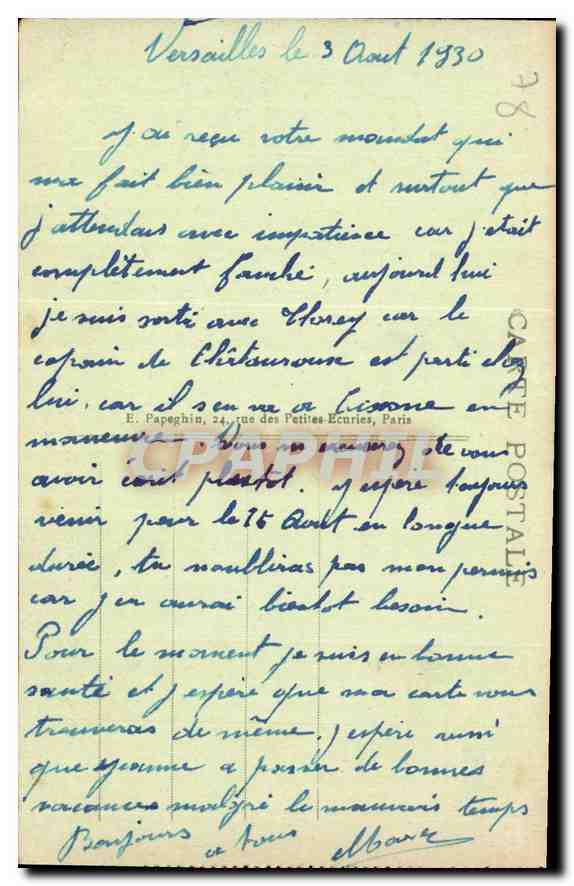 Versailles le 3 Aout 1930
78
J ai reçu votre mandat qui
ma fait bien plaisir et surtout que
j attendais avec impatience car j etait
complètement fauché, aujourd hui
je suis sorti avec Thorey car le
copain de est parti chez
lui, car il s en va a Sissone en
E. Papeghin, 24, rue des Petites-Ecuries, Paris
manœuvre. Vous m excuserez de vous
CPAPHIL
avoir écrit plustot. J espère toujours
venir pour le 15 Aout en longue
durée, tu noublieras pas mon permis
car j en aurai bientot besoin.
Pour le moment je suis en bonne
santé et j espère que ma carte vous
trouveras de même. J espère aussi
que Jeanne a passer de bonnes
vacances malgré le mauvais temps
Bonjours a tous
CARTE POSTALE